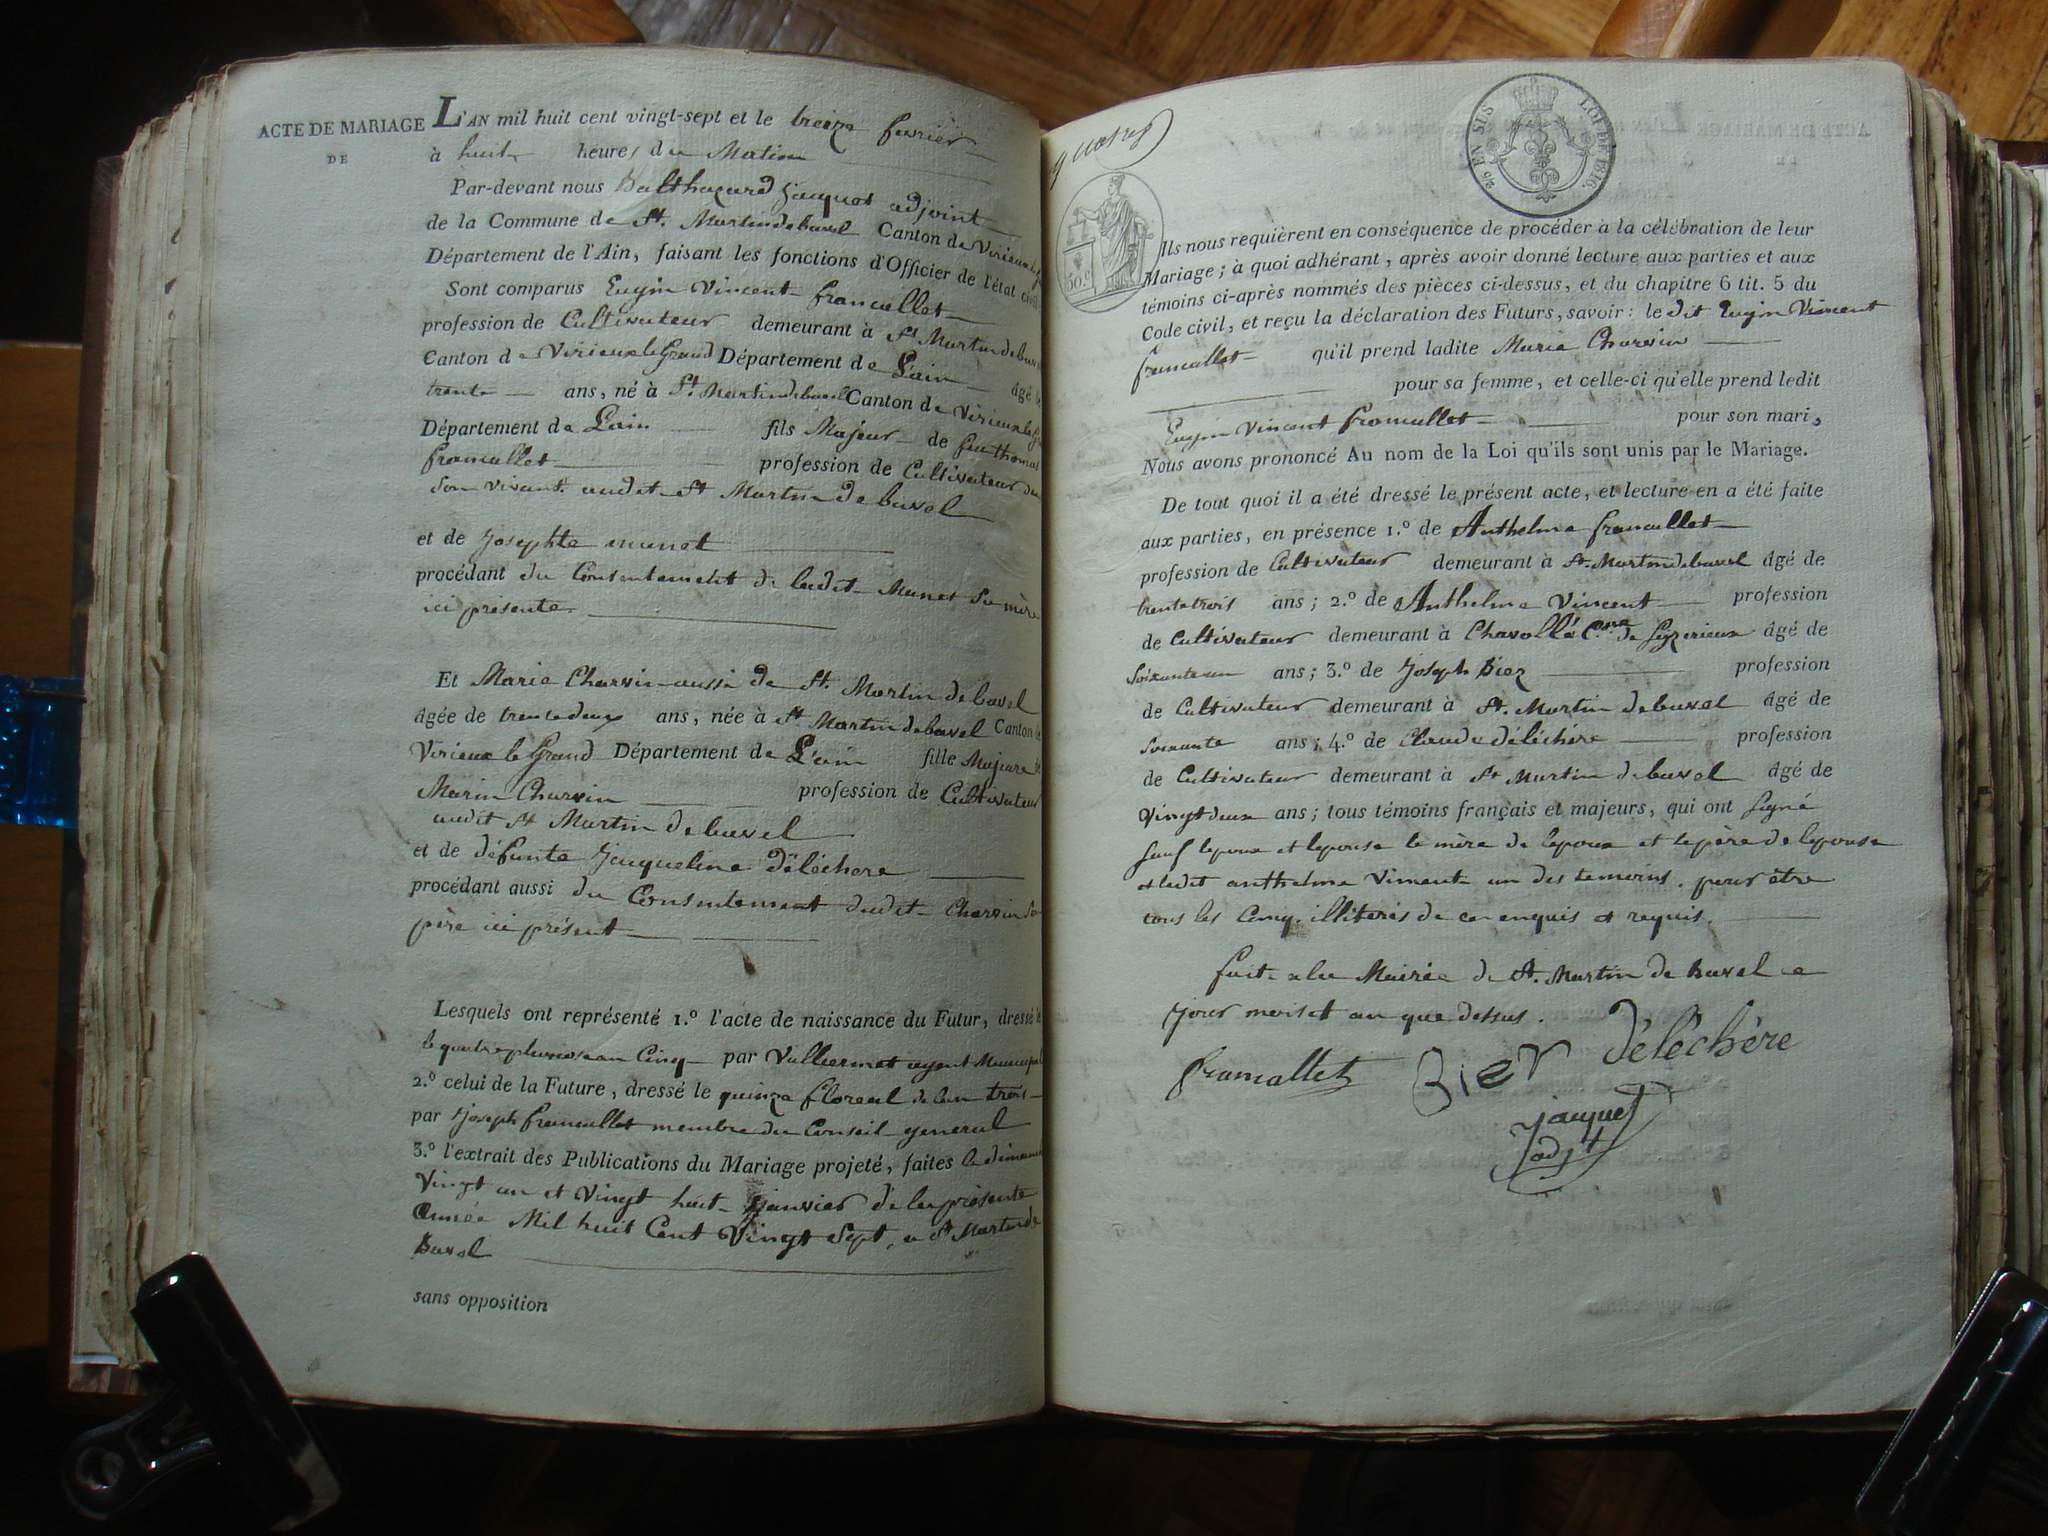 ACTE DE MARIAGE
DE
L'AN mil huit cent vingt-sept et le treize fevrier
à huit heures du Matin
Par-devant nous Balthazard Jacquet adjoint
de la Commune de St. Martin de bavel Canton de Virieux le
Département de l'Ain, faisant les fonctions d'Officier de l'état civil
Sont comparus Eugin Vincent francallet
profession de Cultivateur demeurant à St Martin de bavel
Canton de Virieux le Grand Département de L'ain âgé de
trente ans, né à St Martin de bavel Canton de Virieux le
Département de Lain fils Majeur de feu thomas
francallet profession de Cultivateur de
son vivant audit St Martin de bavel
et de Josephte munet
procédant du Consentement de ladit Munet Sa mère
ici présente
Et Marie Charvin aussi de St. Martin de bavel
âgée de trente deux ans, née à St Martin de bavel Canton de
Virieux le Grand Département de L'ain fille Majeure de
Marin Charvin profession de Cultivateur
audit St Martin de bavel
et de défunte Jacqueline déléchere
procédant aussi du Consentement dudit Charvin Son
père ici présent
Lesquels ont représenté 1.º l'acte de naissance du Futur, dressé le
le quatre pluviose an Cinq par Vulliermet agent Municipal
2.º celui de la Future, dressé le quinze floreal de lan trois
par Joseph francallet membre du Conseil general
3.º l'extrait des Publications du Mariage projeté, faites le dimanche
Vingt un et Vingt huit janvier de la présente
Année Mil huit Cent Vingt Sept, a St Martin de
Bavel
sans opposition
EN SUS
LOI DE 1816.
50.c
Ils nous requièrent en conséquence de procéder à la célébration de leur
Mariage; à quoi adhérant, après avoir donné lecture aux parties et aux
témoins ci-après nommés des pièces ci-dessus, et du chapitre 6 tit. 5 du
Code civil, et reçu la déclaration des Futurs, savoir: le dit Eugin Vincent
francallet qu'il prend ladite Marie Charvin
pour sa femme, et celle-ci qu'elle prend ledit
Eugin Vincent francallet pour son mari,
Nous avons prononcé Au nom de la Loi qu'ils sont unis par le Mariage.
De tout quoi il a été dressé le présent acte, et lecture en a été faite
aux parties, en présence 1.º de Anthelme francallet
profession de Cultivateur demeurant à St. Martin de bavel âgé de
trente trois ans; 2.º de Anthelme Vincent profession
de Cultivateur demeurant à Chavollé Cne de Seyzerieux âgé de
Soixante un ans; 3.º de Joseph Biez profession
de Cultivateur demeurant à St. Martin de bavel âgé de
Soixante ans; 4.º de Claude déléchère profession
de Cultivateur demeurant à St Martin de bavel âgé de
Vingt deux ans; tous témoins français et majeurs, qui ont Signé
Sauf lepoux et lepouse la mère de lepoux et le père de lepouse
et ledit anthelme Vincent un des temoins, pour être
tous les Cinq illiterés de ce enquis et requis.
fait a la Mairie de St. Martin de Bavel ce
jour mois et an que dessus.
francallet Bier déléchère
Jacquet
adjt